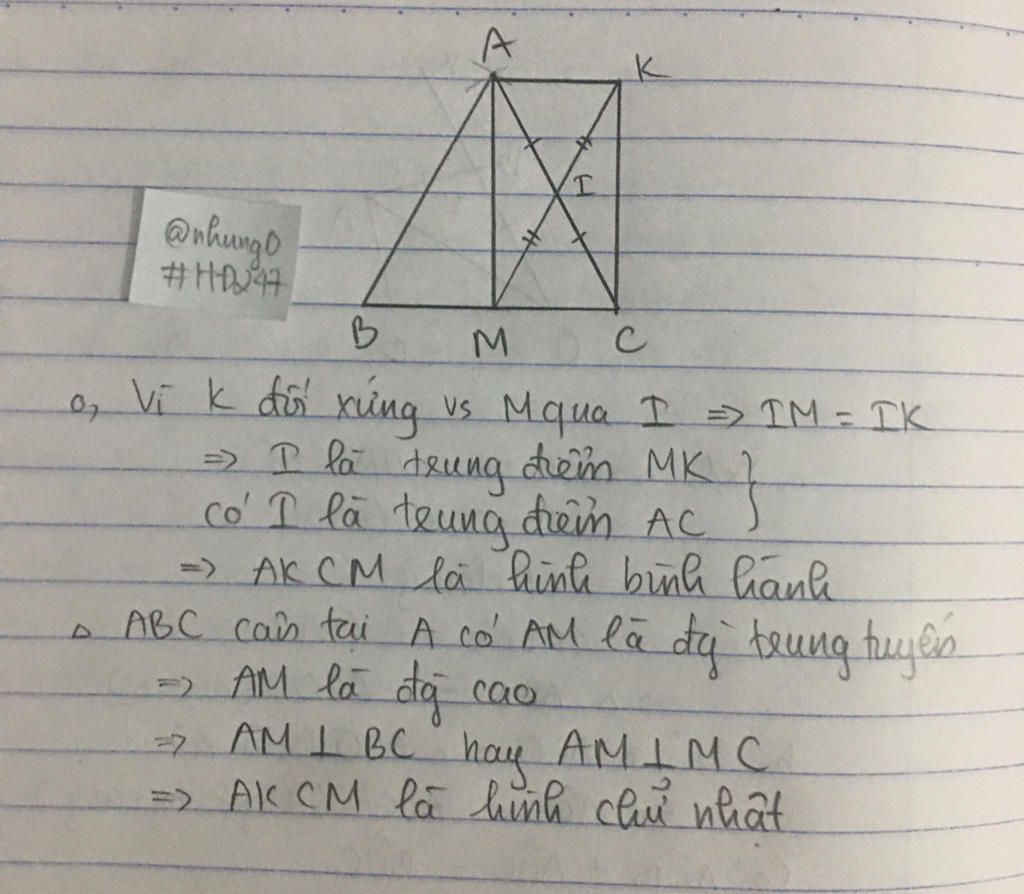 A
K
I
@nhung0
#HD247
B M C
a, Vì K đối xứng vs M qua I => IM = IK
=> I là trung điểm MK }
có I là trung điểm AC
=> AKCM là hình bình hành
△ ABC cân tại A có AM là đg trung tuyến
=> AM là đg cao
=> AM ⊥ BC hay AM ⊥ MC
=> AKCM là hình chữ nhật